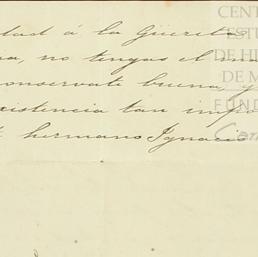 dad á la Güera
no tengas el
conservate buena, y
istencia tan impo
hermano Ignacio
CENT
EST
DE HI
DE M
FUND
Car